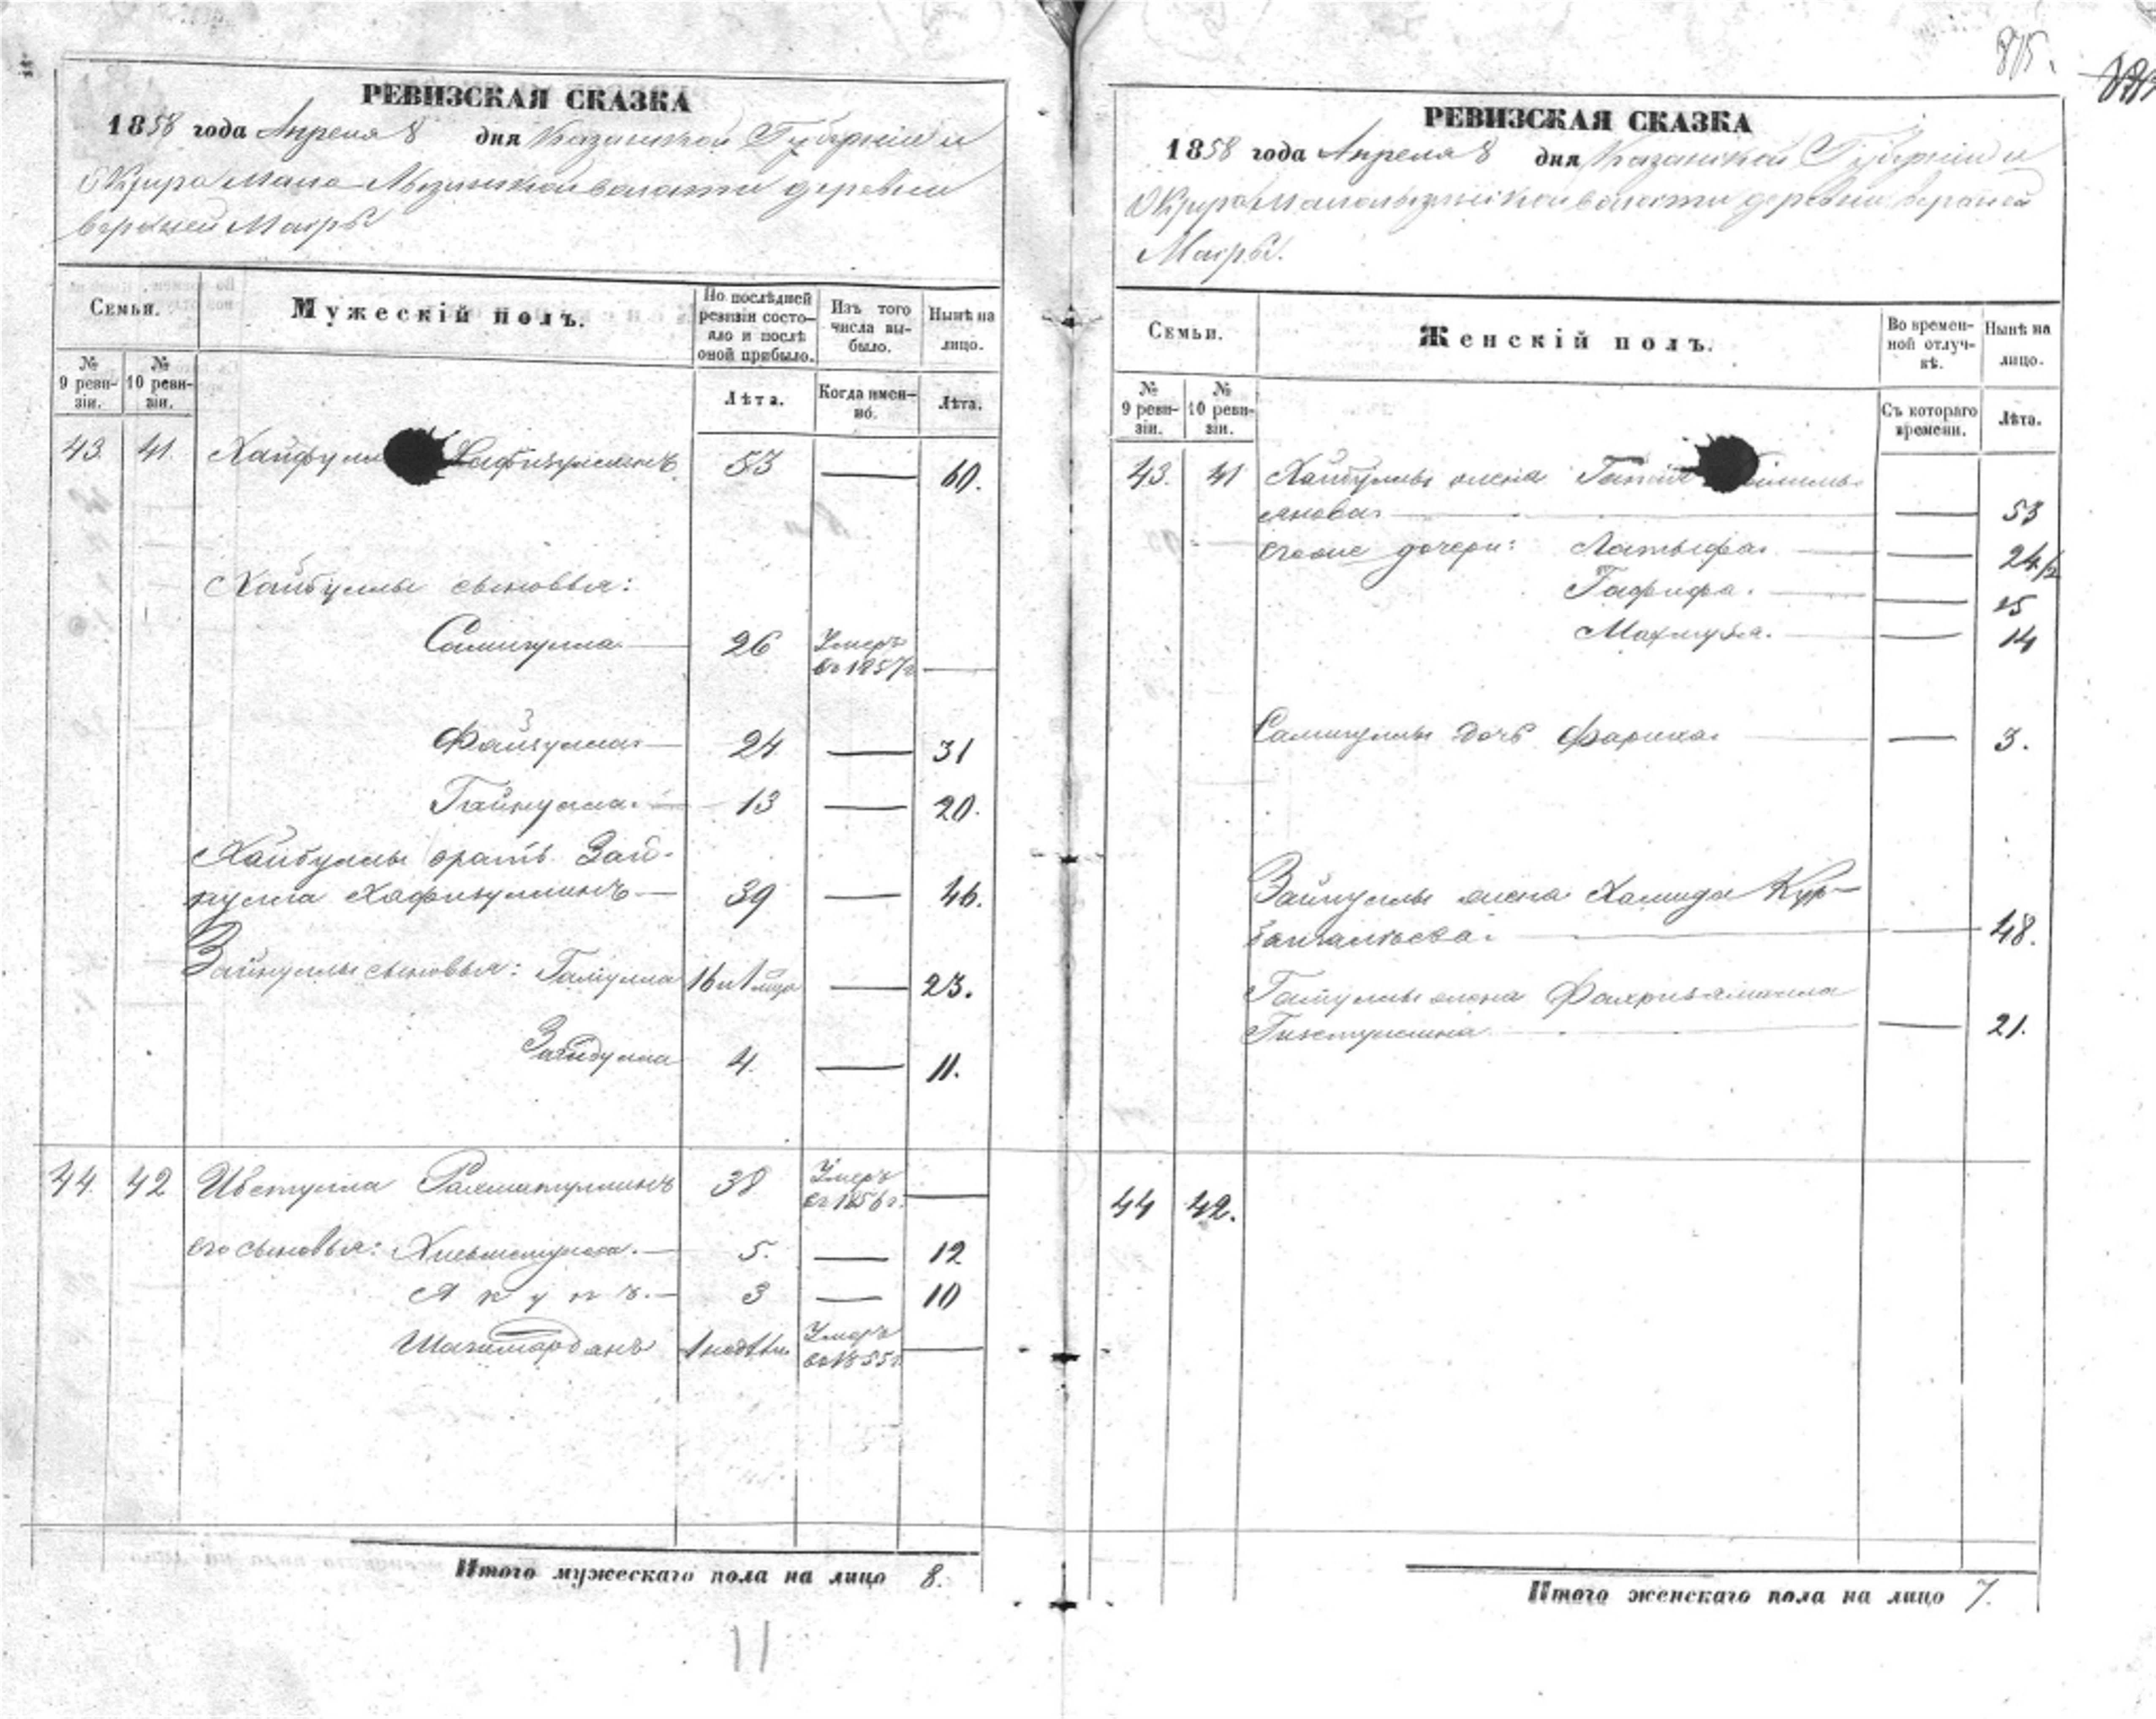 РЕВИЗСКАЯ СКАЗКА
1858 года Апреля 8 дня Казанской Губерніи и
Округа Мало-Лызинской волости деревни
верхней Масры
Семьи.
Мужескій полъ.
По послѣдней ревизіи состояло и послѣ оной прибыло.
Изъ того числа выбыло.
Нынѣ на лицо.
№ 9 ревизіи.
№ 10 ревизіи.
Лѣта.
Когда именно.
Лѣта.
43. 41. Хайбулла Хафизуллинъ 53 — 60.
Хайбуллы сыновья:
Самигулла 26 Умеръ въ 1857 г. —
Файзулла 24 — 31
Гайнулла 13 — 20.
Хайбуллы братъ Зай-
нулла Хафизуллинъ 39 — 46.
Зайнуллы сыновья: 16 — 23.
4. — 11.
44. 42 Рахматуллинъ 38 Умеръ въ 1856 г. —
его сыновья: 5. — 12
Якупъ. 3 — 10
Шагимарданъ Умеръ въ 1855 г. —
Итого мужескаго пола на лицо 8.
11
815.
РЕВИЗСКАЯ СКАЗКА
1858 года Апреля 8 дня Казанской Губерніи и
Округа Малолызинской волости деревни верхней
Масры.
Семьи.
Женскій полъ.
Во временной отлучкѣ.
Нынѣ на лицо.
№ 9 ревизіи.
№ 10 ревизіи.
Съ котораго времени.
Лѣта.
43. 41 Хайбуллы жена
янова — 53
его дочери: Латыфа — 24 1/2
Гафифа. — 15
— 14
Самигуллы дочь — 3.
Зайнуллы жена Хамида Кур-
бангалеева — 48.
жена
— 21.
44 42.
Итого женскаго пола на лицо 7.